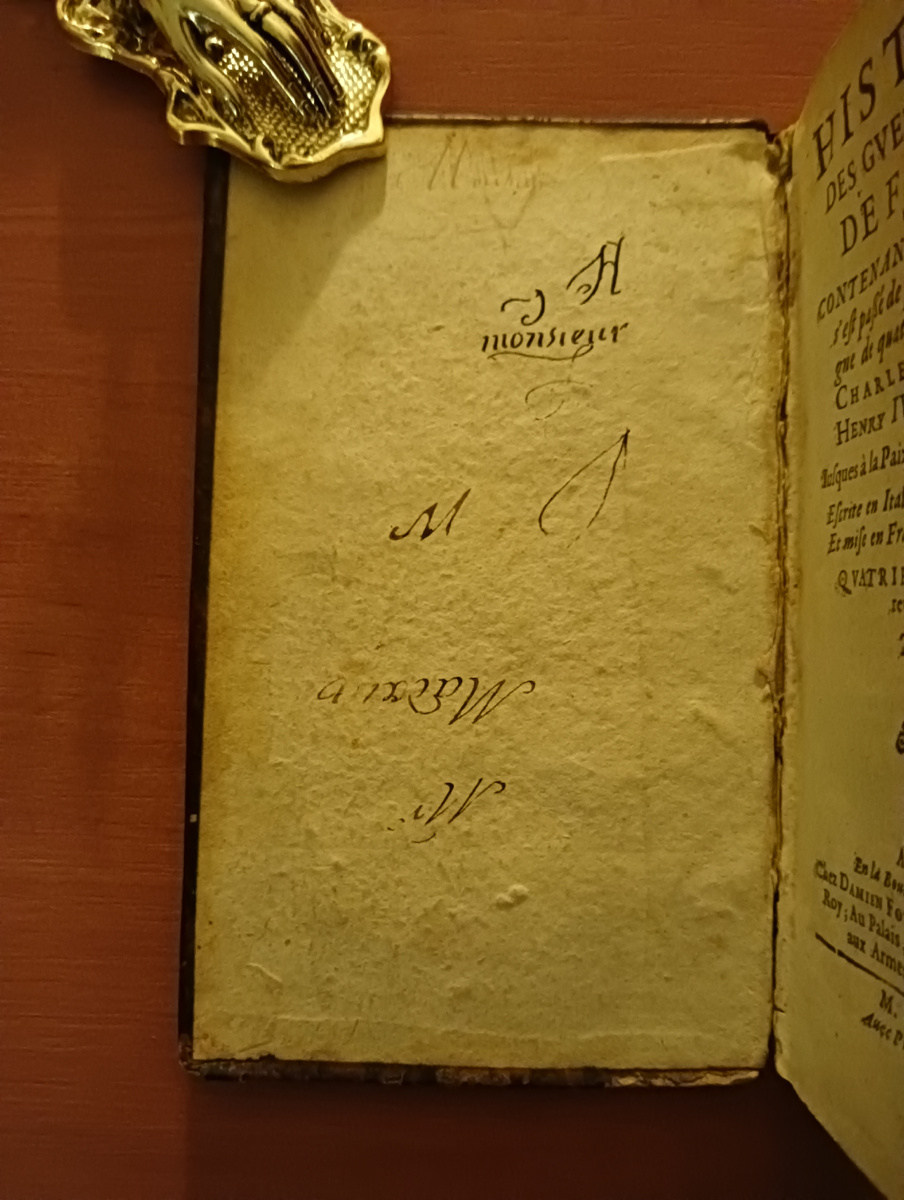 A
monsieur
M
HIST
DES GVE
DE F
CONTENAN
s'est passé de
gne de quat
CHARLE
HENRY IV
Iusques à la Paix
Escrite en Ital
Et mise en Fra
QVATRIE
En la Bou
Chez DAMIEN FO
Roy; Au Palais,
aux Arme
M.
Auec P